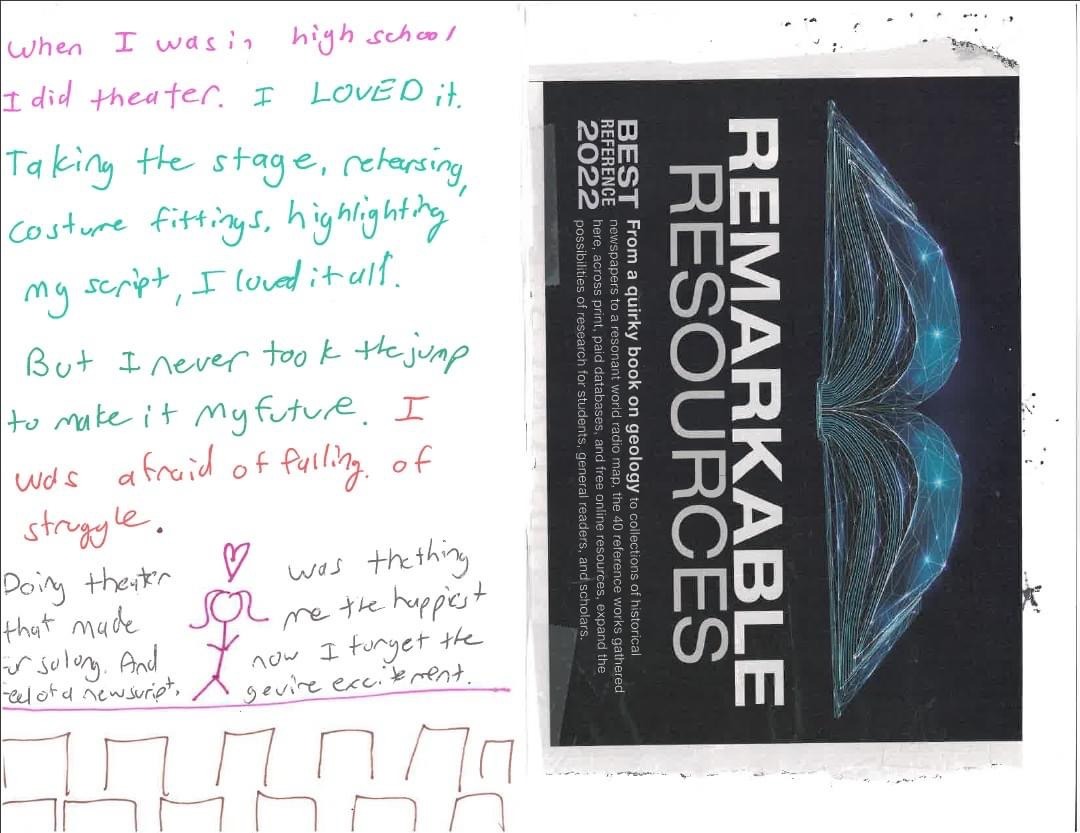 When I was in high school
I did theater. I LOVED it.
Taking the stage, rehearsing,
costume fittings, highlighting
my script, I loved it all.
But I never took the jump
to make it my future. I
was afraid of falling. of
struggle.
Doing theater was the thing
that made me the happiest
so long. And now I forget the
of a new script, excitement.
REMARKABLE
RESOURCES
BEST
REFERENCE
2022
From a quirky book on geology to collections of historical
newspapers to a resonant world radio map, the 40 reference works gathered
here, across print, paid databases, and free online resources, expand the
possibilities of research for students, general readers, and scholars.